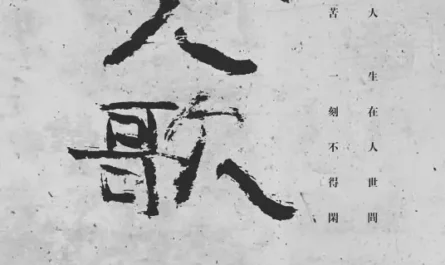 人 生在人世間
苦 一刻不得閑
歌